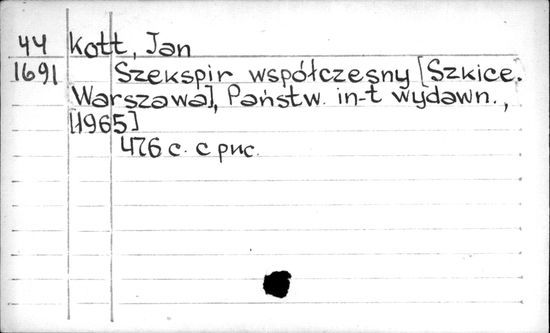 44 Kott, Jan
1691 Szekspir współczesny [Szkice.
Warszawa], Państw. in-t wydawn.,
[1965]
476 с. с рис.